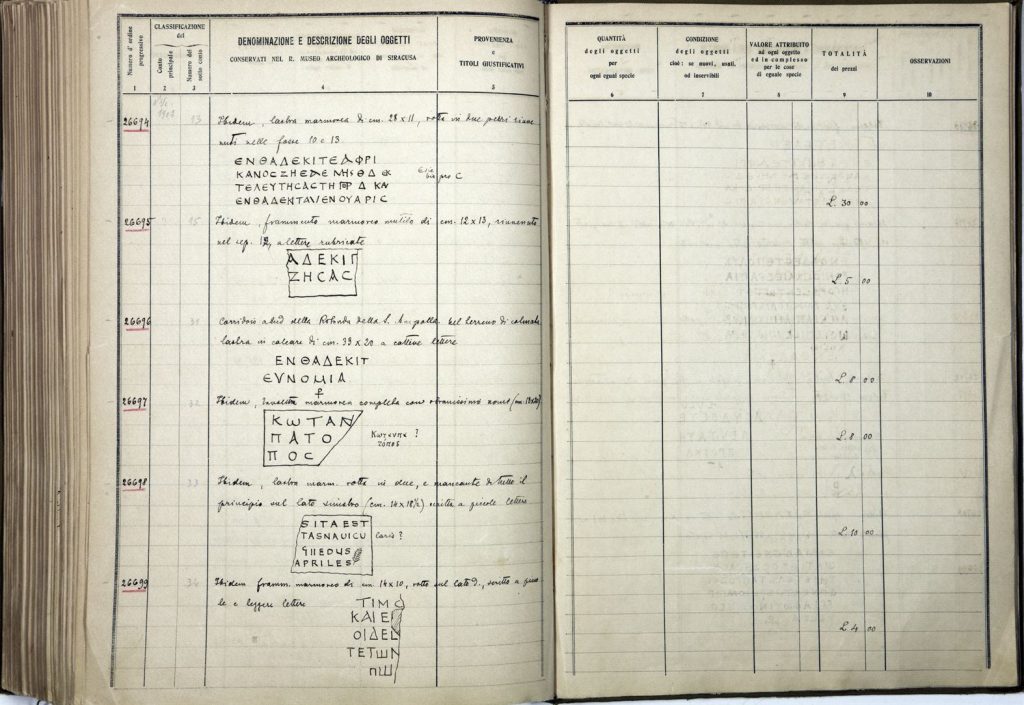 Numero d' ordine progressivo
CLASSIFICAZIONE del
Conto principale
Numero del sotto conto
DENOMINAZIONE E DESCRIZIONE DEGLI OGGETTI
CONSERVATI NEL R. MUSEO ARCHEOLOGICO DI SIRACUSA
PROVENIENZA
e
TITOLI GIUSTIFICATIVI
1 2 3 4 5
26694 13 Ibidem, lastra marmorea di cm. 28 x 11, rotta in due pezzi rinve
nuti nelle fosse 10 e 13
ΕΝΘΑΔΕΚΙΤΕΑΦΡΙ
ΚΑΝΟCΖΗCΑC
pro C
ΤΕΛΕΥΤΗCΑCΤΗ
ΕΝΘΑΔΕΝ ΙΕΝΟΥΑΡΙC
26695 15 Ibidem, frammento marmoreo mutilo di cm. 12 x 13, rinvenuto
nel sep. 12, a lettere rubricate
ΑΔΕΚΙΤ
ΖΗCΑC
26696 31 Corridoio a Sud della Rotonda della S. Ampolla. Nel terreno di colmata
lastra in calcare di cm. 39 x 20 a cattive lettere
ΕΝΘΑΔΕΚΙΤ
ΕΥΝΟΜΙΑ
26697 32 Ibidem, marmorea completa con rarissimo nome
ΚΩΤΑΝ
ΠΑΤΟ
ΠΟC
?
τόπος
26698 33 Ibidem, lastra marm. rotta in due, e mancante di tutto il
principio sul lato sinistro (cm. 14 x 18½) scritta a piccole lettere
SITAEST
TASNAVICU
caris ?
EDUS
APRILES
26699 34 Ibidem framm. marmoreo di cm. 14 x 10, rotto sul lato d., scritto a picco
le e leggere lettere
ΤΙΜΟ
ΚΑΙΕΙ
ΟΙΔΕ
ΤΕΤΩΝ
ΠΩ
QUANTITÀ
degli oggetti
per
ogni egual specie
CONDIZIONE
degli oggetti
cioè: se nuovi, usati,
od inservibili
VALORE ATTRIBUITO
ad ogni oggetto
ed in complesso
per le cose
di eguale specie
TOTALITÀ
dei prezzi
OSSERVAZIONI
6 7 8 9 10
L. 30 00
L. 5 00
L. 8 00
L. 8 00
L. 10 00
L. 4 00